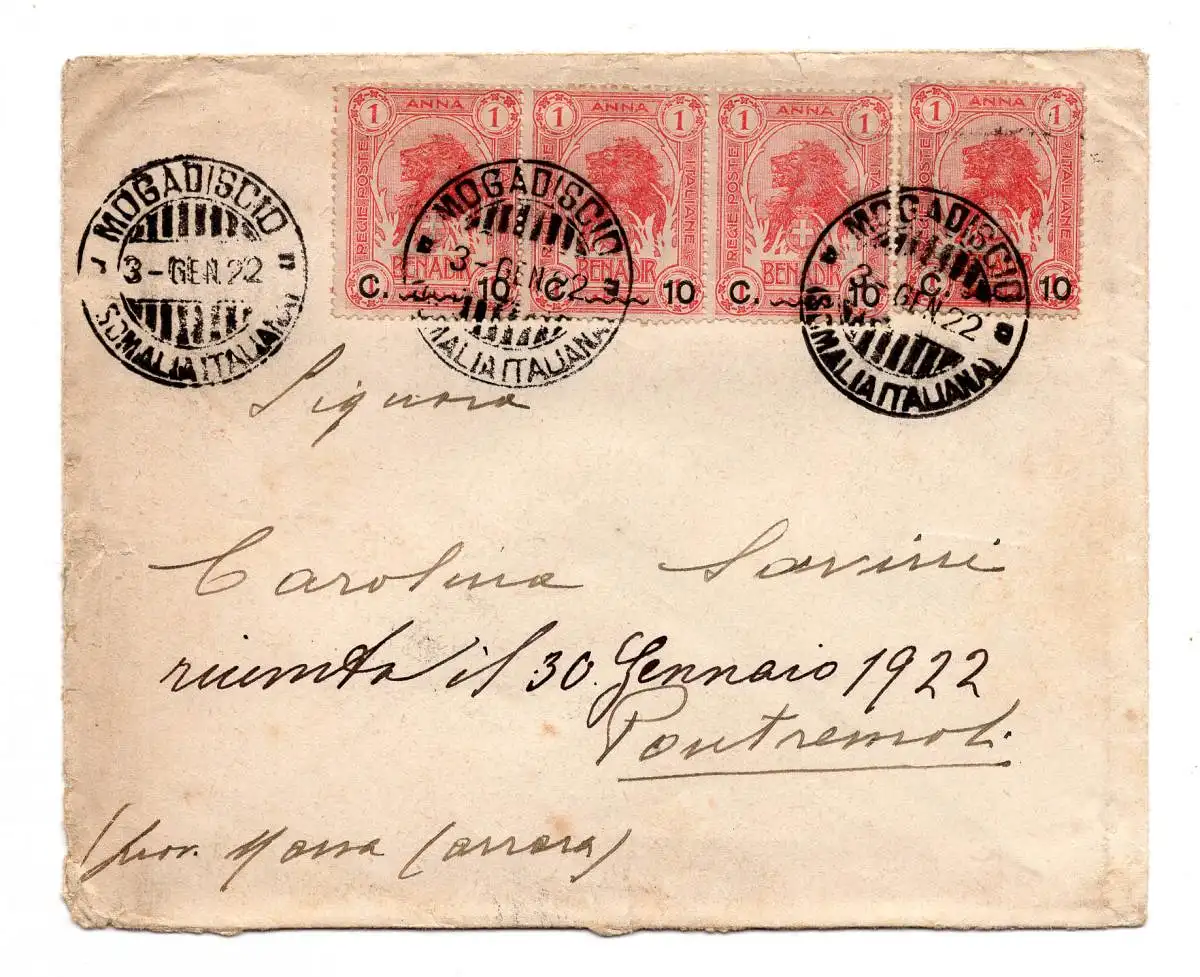 1 ANNA 1
REGIE POSTE ITALIANE
BENADIR
C. 10
1 ANNA 1
BENADIR
C. 10
1 ANNA 1
REGIE POSTE ITALIANE
BENADIR
C. 10
1 ANNA 1
REGIE POSTE ITALIANE
C. 10
MOGADISCIO
3-GEN.22
(SOMALIA ITALIANA)
MOGADISCIO
3-GEN.22
MALIA ITALIANA)
MOGADISCIO
3-GEN.22
(SOMALIA ITALIANA)
Signora
Carolina Savini
il 30. Gennaio 1922
Pontremoli
(prov. Massa Carrara)